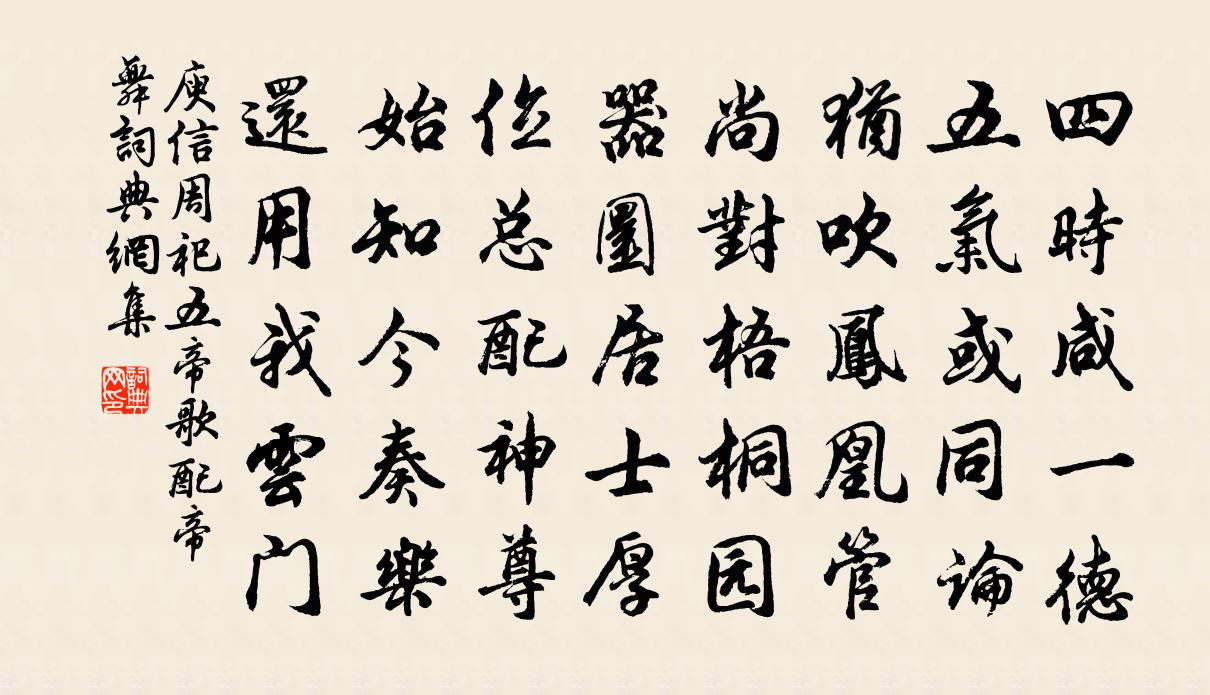 四時咸一德
五氣或同論
猶吹鳳凰管
尚對梧桐园
器圜居士厚
位总配神尊
始知今奏樂
還用我雲门
庾信周祀五帝歌配帝
舞詞典網集
詞典
网印